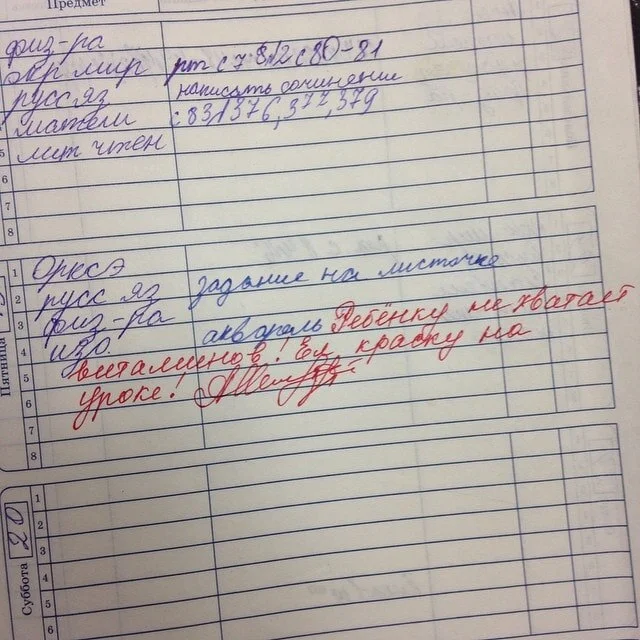 Предмет
физ-ра
окр мир рт с 78,12 с80-81
русс яз написать сочинение
матем с 83,1376,377,379
5 лит чтен
6
7
8
Пятница
1 ОРКСЭ
2 русс яз задание на листочке
3 физ-ра
4 изо. акварель Ребёнку не хватает
5 витаминов! Ел краску на
6 уроке!
7
8
Суббота 20
1
2
3
4
5
6